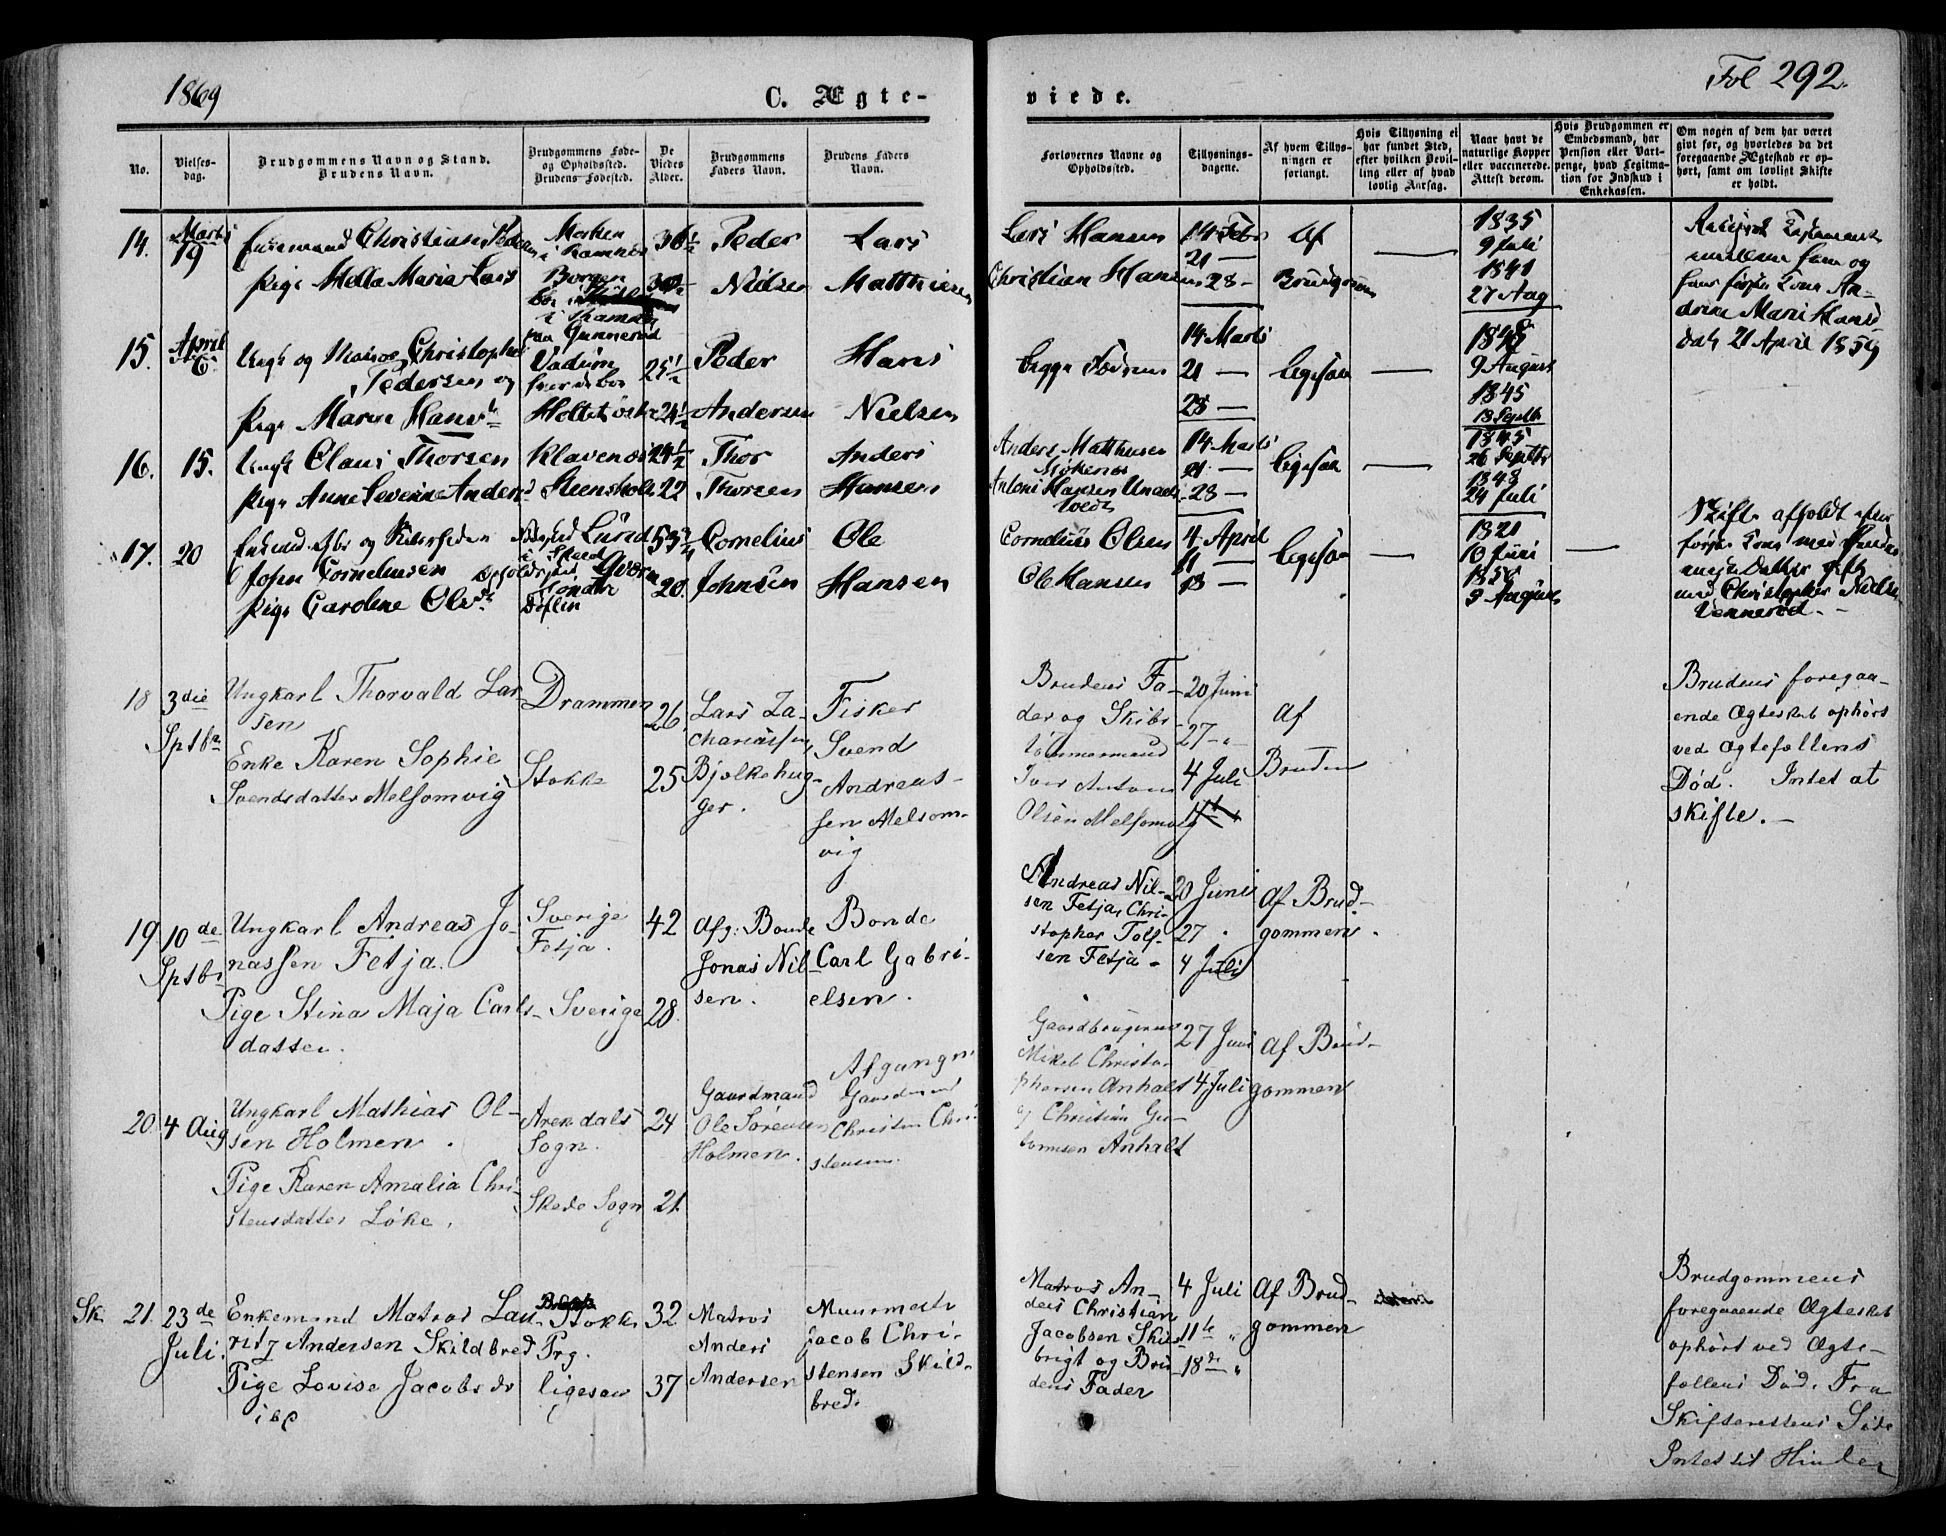 1869
C. Ægte-
viede.
Fol 292.
No.
Vielses-
dag.
Brudgommens Navn og Stand.
Brudens Navn.
Brudgommens Føde-
og Opholdssted.
Brudens Fødested.
De
Viedes
Alder.
Brudgommens
Faders Navn.
Brudens Faders
Navn.
Forlovernes Navne og
Opholdssted.
Tillysnings-
dagene.
Af hvem Tillys-
ningen er
forlangt.
Hvis Tillysning ei
har fundet Sted,
efter hvilken Bevil-
ling eller af hvad
lovlig Aarsag.
Naar havt de
naturlige Kopper
eller vaccinerede.
Attest derom.
Hvis Brudgommen er
Embedsmand, har
Pension eller Vart-
penge, hvad Legitima-
tion for Indskud i
Enkekassen.
Om nogen af dem har været
givt for, og hvorledes da det
foregaaende Ægteskab er op-
hørt, samt om lovligt Skifte
er holdt.
14.
Marts
19
Christian
Pige Maria Lars
Borgen
36½
Peder
Nielsen
Lars
Matthiesen
Lars Hansen
Christian Hansen
14 Febr
21 —
28 —
Af
Brudgommen
—
1835
9 Juli
1841
27 Aug
mellem ham og
Marie Hans
21 April 1859
15.
April
6
Ungk og Christopher
Pedersen og
Pige Maren Hans
paa Gunnerød
25½
24½
Peder
Andersen
Hans
Nielsen
14 Marts
21 —
28 —
ligesaa
—
1848
9 August
1845
18 Septb
16.
15.
Ungk Claus Thorsen
Pige Anne Severine Anders
Klavenes
24½
22
Thor
Thorsen
Anders
Hansen
Anders Matthiesen
Antoni Hansen
14 Marts
21 —
28 —
ligesaa
—
1845
26 Septbr
1848
24 Juli
17.
20
John Corneliussen
Pige Caroline Ols
53¾
20.
Cornelius
Johnsen
Ole
Hansen
Cornelius Olsen
Ole Hansen
4 April
11 —
18 —
ligesaa
—
1821
10 Juni
1850
9 August
—
Skifte afholdt efter
med Christopher Nielsen
18
3die
Sptbr
Ungkarl Thorvald Lar-
sen
Enke Karen Sophie
Svendsdatter Melsomvig
Drammen
Stokke
26
25
Lars Za-
chariassen
Bjelkehug-
ger.
Fisker
Svend
Andreas-
sen Melsom-
vig
Brudens Fa-
der og Skibs-
tømmermand
Iver Anton
Olsen Melsomvig
20 Juni
27 - "
4 Juli
af
Bruden
Brudens foregaa-
ende Ægteskab ophørt
ved Ægtefællens
Død. Intet at
skifte. —
19
10de
Sptbr
Ungkarl Andreas Jo-
nassen Fetja.
Pige Stina Maja Carls-
datter.
Sverige
Fetja.
Sverige
42
28.
Afg: Bonde
Jonas Nil-
sen.
Bonde
Carl Gabri-
elsen.
Andreas Nil-
sen Fetja, Chri-
stopher Tolf-
sen Fetja -
20 Juni
27 "
4 Juli
af Brud-
gommen.
20.
4 Aug
Ungkarl Mathias Ol-
sen Holmen.
Pige Karen Amalia Chri-
stensdatter Løke.
Arendals
Sogn.
Skede Sogn
24
21.
Gaardmand
Ole Sørensen
Holmen.
Afgangn
Gaardmand
Christen Chri-
stensen.
Gaardbrugerne
Mikel Christo-
phersen Anhalt
og Christian Gu-
tormsen Anhalt
27 Juni
4 Juli
af Brud-
gommen
Sk.
21.
23de
Juli.
Enkemand Matros Lau-
ritz Andersen Skildbred
Pige Lovise Jacobsdr
ibd
Stokke
Prg.
ligesaa
32
37
Matros
Anders
Andersen
Muurmester
Jacob Chri-
stensen Skild-
bred.
Matros An-
ders Christian
Jacobsen Skild-
brigt og Bru-
dens Fader
4 Juli
11te "
18de "
Af Brud-
gommen
Brudgommens
foregaaende Ægteskab
ophørt ved Ægte-
fællens Død. Fra
Skifterettens Side
Intet til Hinder